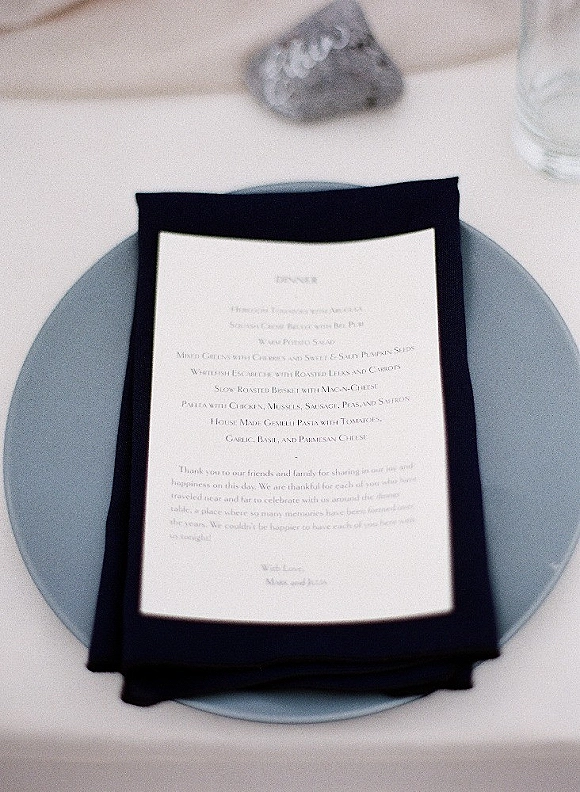 DINNER
HEIRLOOM TOMATOES WITH ARUGULA
SQUASH CRÈME BRÛLÉE WITH BEE PUR
WARM POTATO SALAD
MIXED GREENS WITH CHERRIES AND SWEET & SALTY PUMPKIN SEEDS
WHITEFISH ESCABECHE WITH ROASTED LEEKS AND CARROTS
SLOW ROASTED BRISKET WITH MAC-N-CHEESE
PAELLA WITH CHICKEN, MUSSELS, SAUSAGE, PEAS, AND SAFFRON
HOUSE MADE GEMELLI PASTA WITH TOMATOES,
GARLIC, BASIL, AND PARMESAN CHEESE
-
Thank you to our friends and family for sharing in our joy and
happiness on this day. We are thankful for each of you who have
traveled near and far to celebrate with us around the dinner
table, a place where so many memories have been formed over
the years. We couldn't be happier to have each of you here with
us tonight!
With Love,
MARK and JULIA